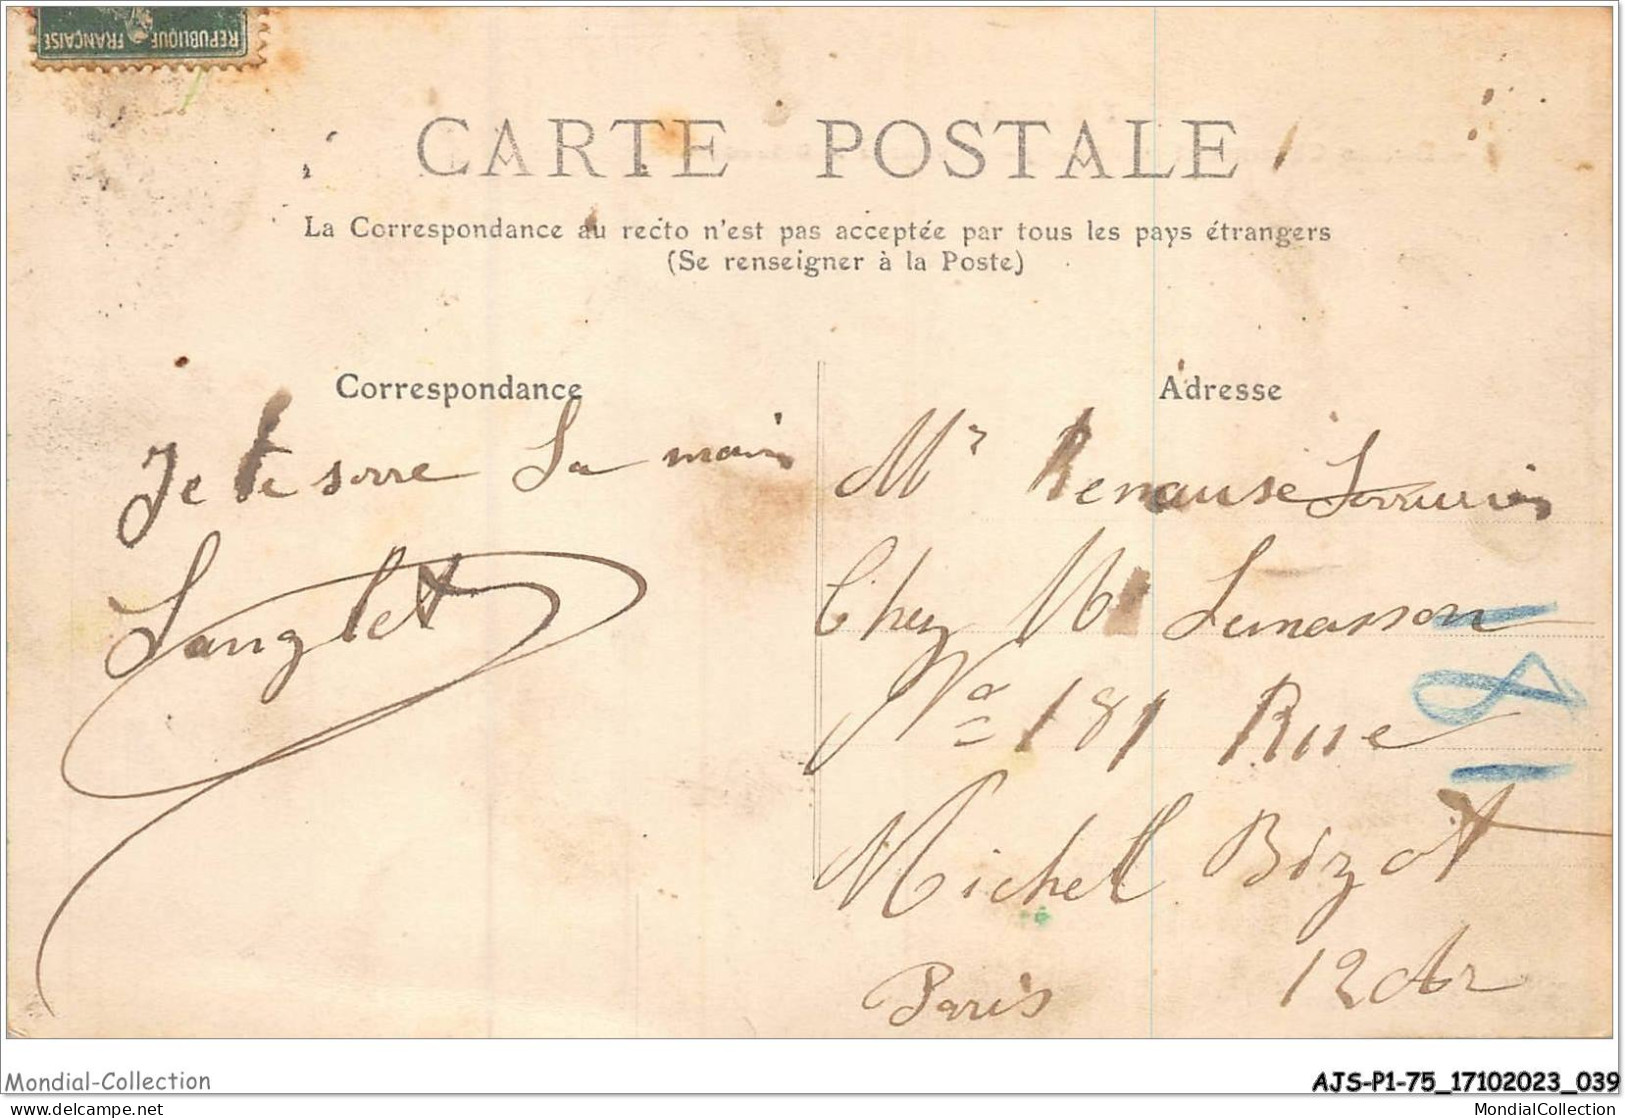 REPUBLIQUE FRANÇAISE
CARTE POSTALE
La Correspondance au recto n'est pas acceptée par tous les pays étrangers
(Se renseigner à la Poste)
Correspondance
Je te serre La main
Langlet
Adresse
Mr Renause
Chez Mr Lemasson
No 181 Rue
Michel Bizot
Paris 12 Ar
Mondial-Collection
AJS-P1-75_17102023_039
delcampe.net
MondialCollection